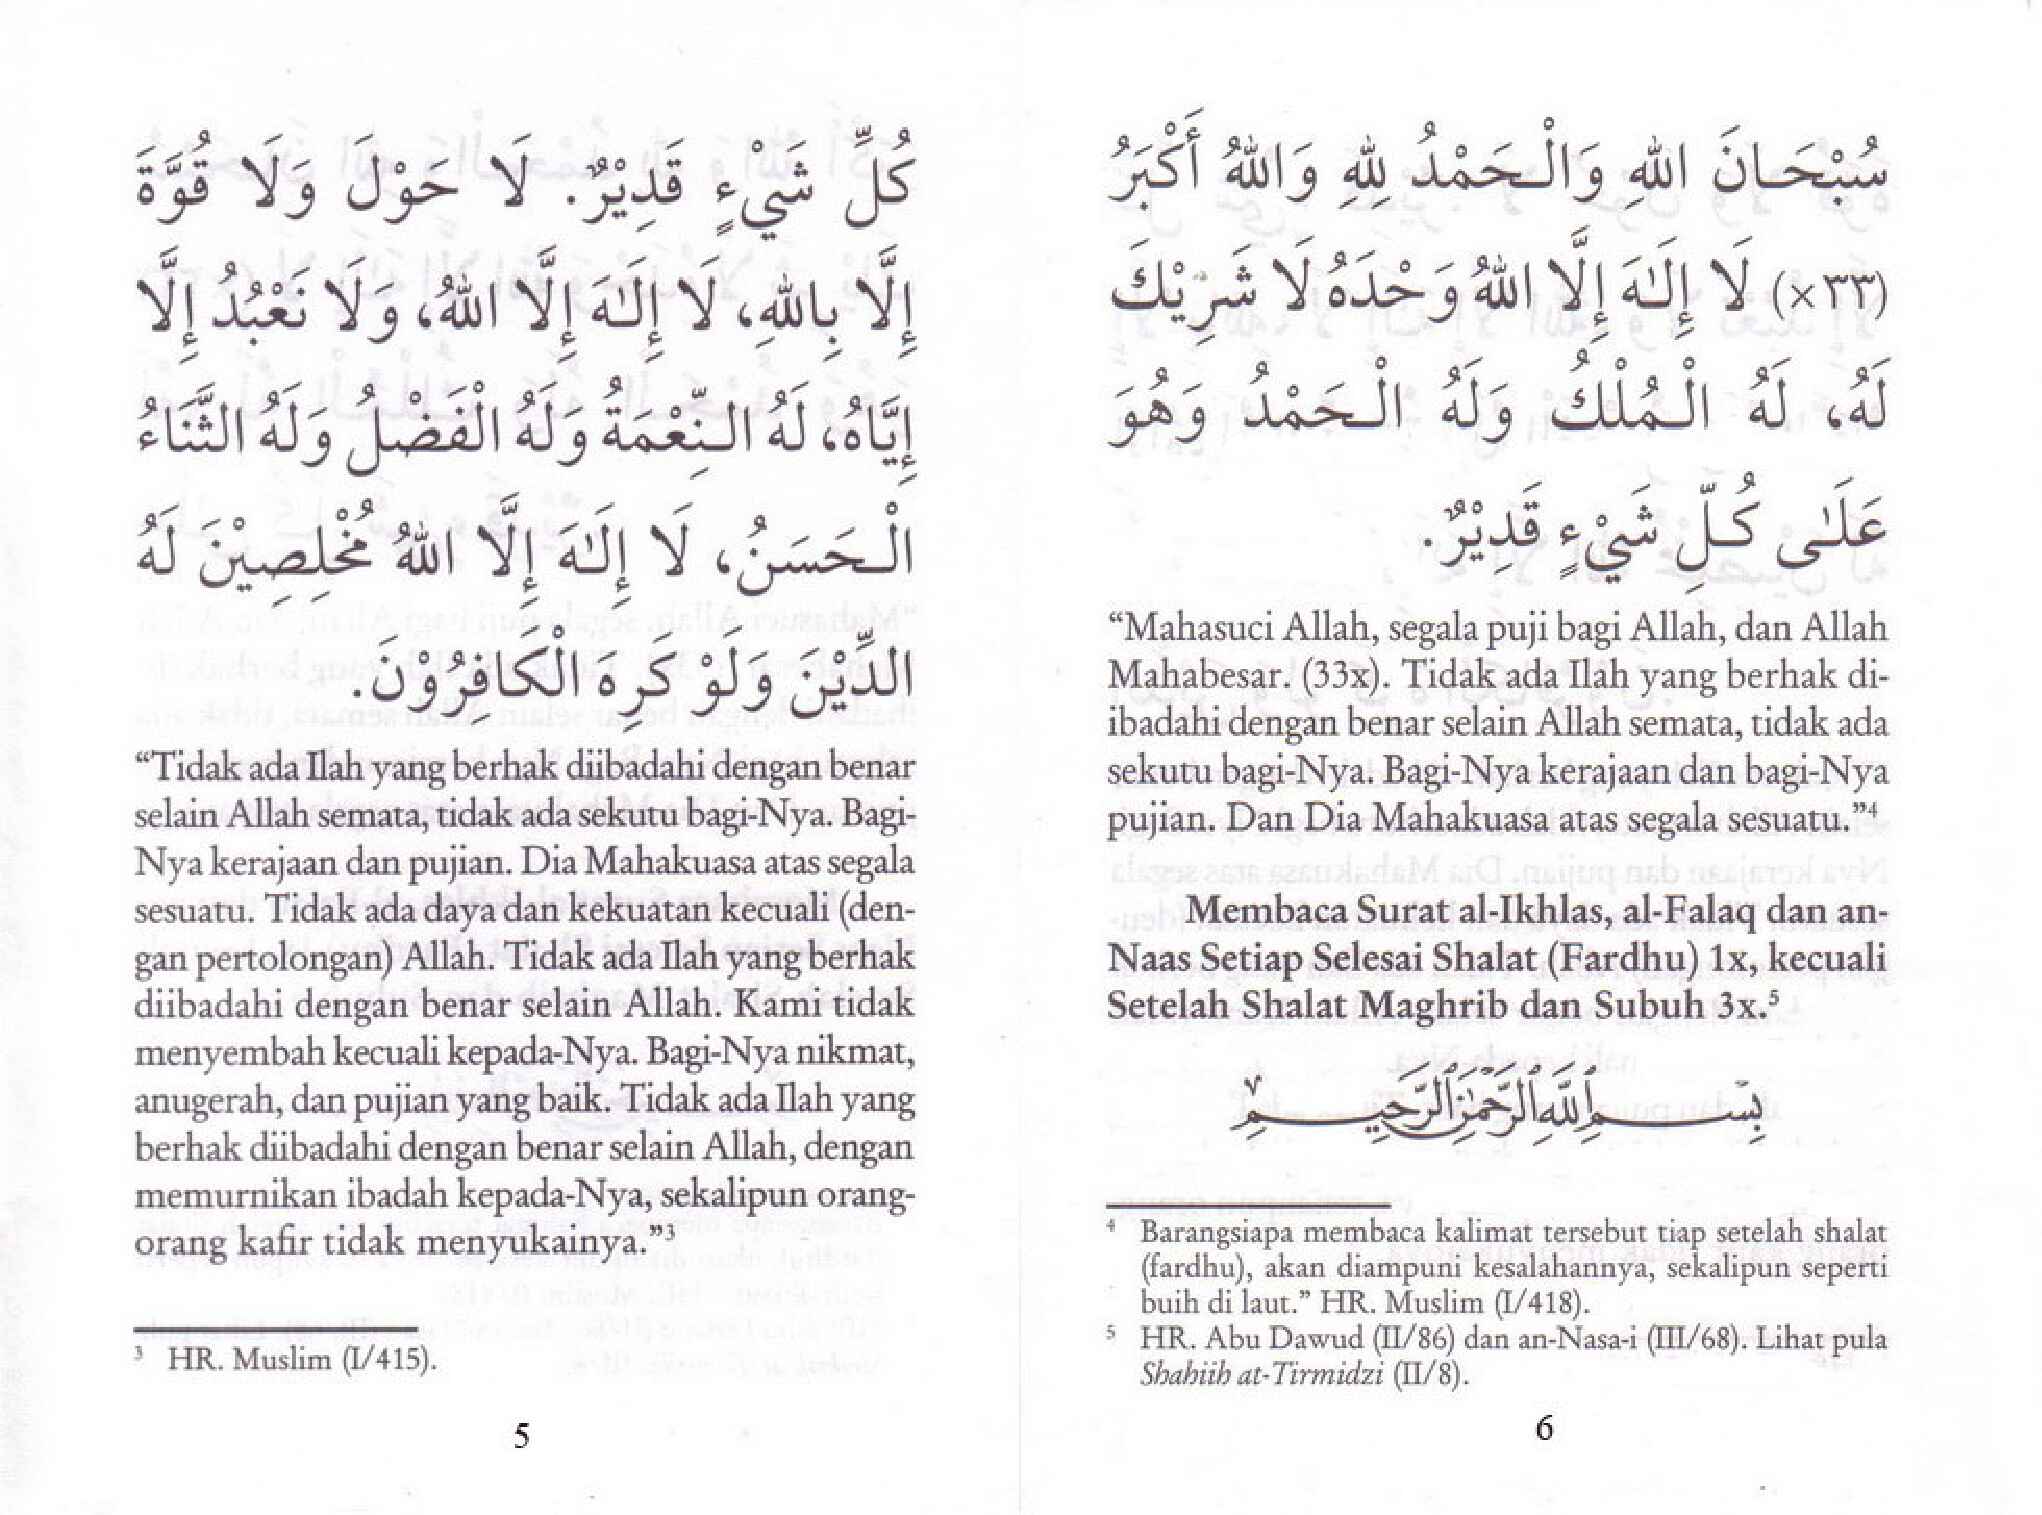 كُلِّ شَيْءٍ قَدِيْرٌ. لَا حَوْلَ وَلَا قُوَّةَ
إِلَّا بِاللهِ، لَا إِلَـٰهَ إِلَّا اللهُ، وَلَا نَعْبُدُ إِلَّا
إِيَّاهُ، لَهُ النِّعْمَةُ وَلَهُ الْفَضْلُ وَلَهُ الثَّنَاءُ
الْحَسَنُ، لَا إِلَـٰهَ إِلَّا اللهُ مُخْلِصِيْنَ لَهُ
الدِّيْنَ وَلَوْ كَرِهَ الْكَافِرُوْنَ.
“Tidak ada Ilah yang berhak diibadahi dengan benar
selain Allah semata, tidak ada sekutu bagi-Nya. Bagi-
Nya kerajaan dan pujian. Dia Mahakuasa atas segala
sesuatu. Tidak ada daya dan kekuatan kecuali (den-
gan pertolongan) Allah. Tidak ada Ilah yang berhak
diibadahi dengan benar selain Allah. Kami tidak
menyembah kecuali kepada-Nya. Bagi-Nya nikmat,
anugerah, dan pujian yang baik. Tidak ada Ilah yang
berhak diibadahi dengan benar selain Allah, dengan
memurnikan ibadah kepada-Nya, sekalipun orang-
orang kafir tidak menyukainya.”³
³ HR. Muslim (I/415).
5
سُبْحَانَ اللهِ وَالْحَمْدُ لِلهِ وَاللهُ أَكْبَرُ
(٣٣×) لَا إِلَـٰهَ إِلَّا اللهُ وَحْدَهُ لَا شَرِيْكَ
لَهُ، لَهُ الْمُلْكُ وَلَهُ الْحَمْدُ وَهُوَ
عَلَىٰ كُلِّ شَيْءٍ قَدِيْرٌ.
“Mahasuci Allah, segala puji bagi Allah, dan Allah
Mahabesar. (33x). Tidak ada Ilah yang berhak di-
ibadahi dengan benar selain Allah semata, tidak ada
sekutu bagi-Nya. Bagi-Nya kerajaan dan bagi-Nya
pujian. Dan Dia Mahakuasa atas segala sesuatu.”⁴
Membaca Surat al-Ikhlas, al-Falaq dan an-
Naas Setiap Selesai Shalat (Fardhu) 1x, kecuali
Setelah Shalat Maghrib dan Subuh 3x.⁵
بِسْمِ ٱللَّهِ ٱلرَّحْمَـٰنِ ٱلرَّحِيمِ
⁴ Barangsiapa membaca kalimat tersebut tiap setelah shalat
(fardhu), akan diampuni kesalahannya, sekalipun seperti
buih di laut.” HR. Muslim (I/418).
⁵ HR. Abu Dawud (II/86) dan an-Nasa-i (III/68). Lihat pula
Shahiih at-Tirmidzi (II/8).
6